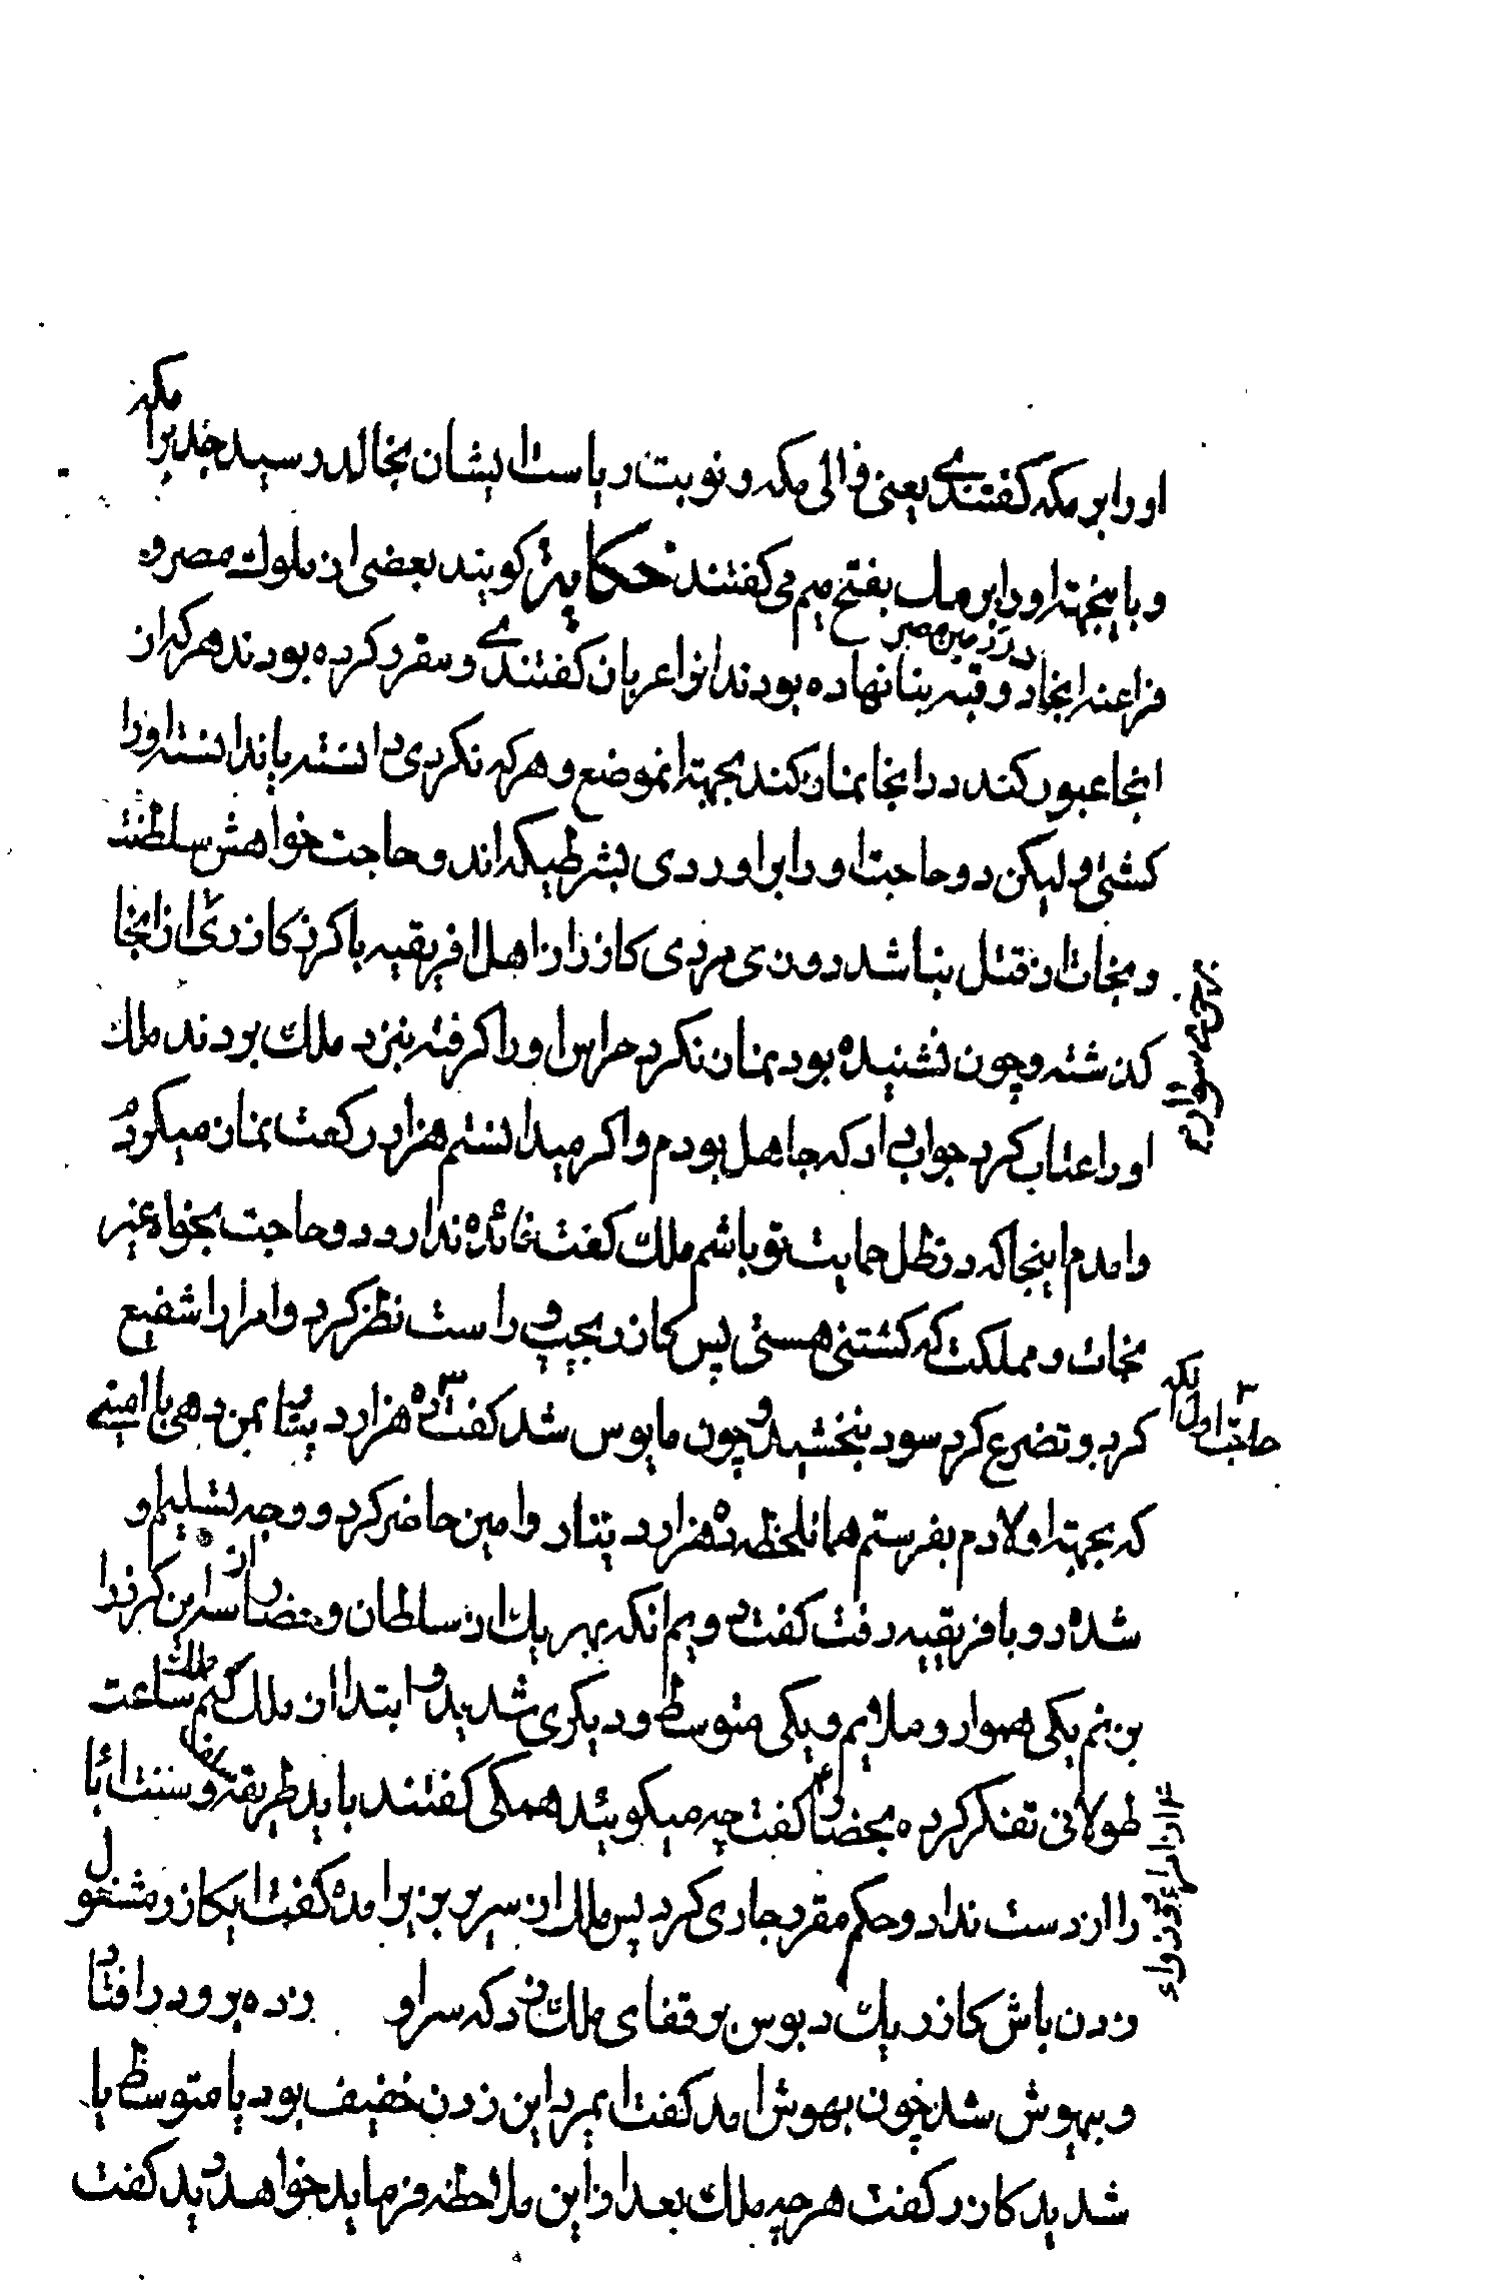 او را بر مکه کفتندی یعنی والی مکه و نوبت ریاست ایشان بخالد رسید جد برامکه
و باینجهته او را بر مک بفتح میم می کفتند حکایة کویند بعضی از ملوک مصر و
فراعنه انجا در زمین مصر دو قبه بنا نهاده بودند انرا غریان کفتندی و مقرر کرده بودند هر که از
انجا عبور کند در انجا نماز کند بجهته انموضع و هر که نکردی دانسته یا ندانسته او را
کشتی و لیکن دو حاجت او را براوردی بشرطیکه اندو حاجت خواهش سلطنت
و نجات از قتل نباشد روزی مردی کازر از اهل افریقیه با کرز کازری از انجا
کذشته و چون نشنیده بود نماز نکرد حراس او را کرفته بنزد ملک بردند ملک
او را عتاب کرد جواب داد که جاهل بودم و اکر میدانستم هزار رکعت نماز میکردم
و امدم اینجا که در ظل حمایت تو باشم ملک کفت فائده ندارد دو حاجت بخواه غیر
نجات و مملکت که کشتنی هستی پس کازر بچپ و راست نظر کرد و امرا را شفیع
کرد و تضرع کرد سود نبخشید و چون مایوس شد کفت حاجت اول انکه ده هزار دینار بمن دهی با امینی
که بجهته اولادم بفرستم همانلحظه ده هزار دینار و امین حاضر کرد و وجه تسلیم او
شده رو بافریقیه رفت کفت دویم انکه بهر یک از سلطان و حضار از سه این کرز را
بزنم یکی هموار و ملایم و یکی متوسط و دیکری شدید و ابتدا از ملک کنم ملک ساعت
طولانی تفکر کرده بحضار کفت چه میکوئید همکی کفتند باید طریقه و سنت ابا
را از دست نداد و حکم مقرر جاری کرد پس ملک از سریر بزیر امده کفت ایکازر مشغول
زدن باش کازر یک دبوس بر قفای ملک زد که سر او زده برو در افتاد
و بیهوش شد چون بهوش امد کفت ایمرد این زدن خفیف بود یا متوسط یا
شدید کازر کفت هر چه ملک بعد از این ملاحظه فرماید خواهد دید کفت